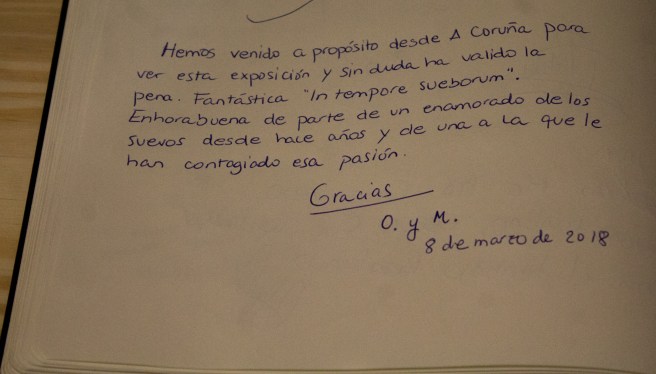 Hemos venido a propósito desde A Coruña para
ver esta exposición y sin duda ha valido la
pena. Fantástica "In tempore sueborum".
Enhorabuena de parte de un enamorado de los
suevos desde hace años y de una a la que le
han contagiado esa pasión.
Gracias
O. y M.
8 de marzo de 2018